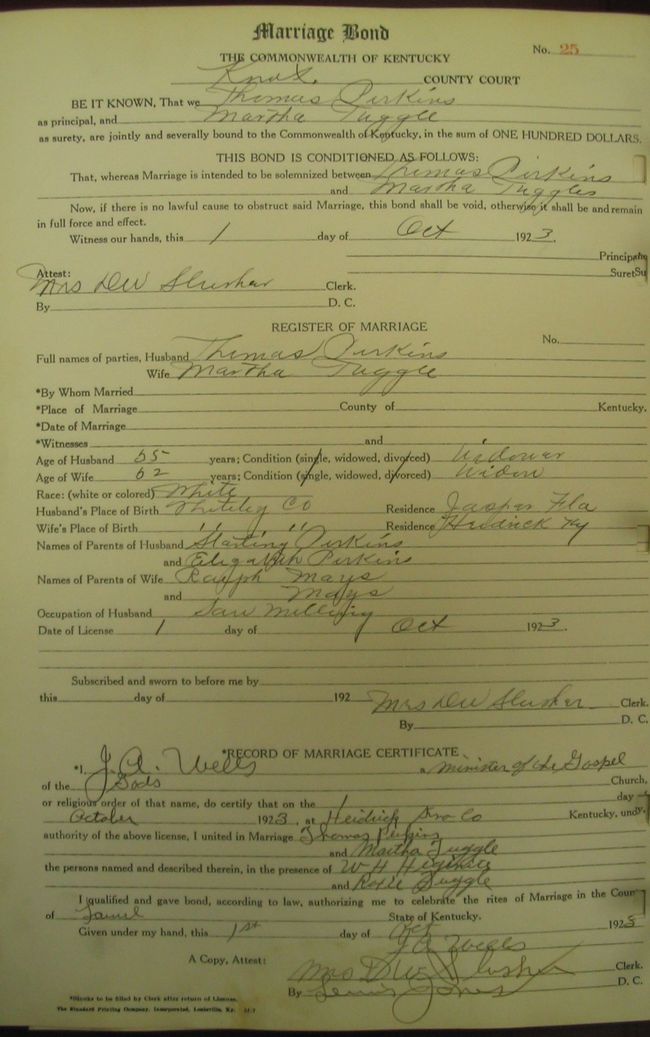 Marriage Bond
No. 25
THE COMMONWEALTH OF KENTUCKY
Knox COUNTY COURT
BE IT KNOWN, That we Thomas Perkins
as principal, and Martha Tuggle
as surety, are jointly and severally bound to the Commonwealth of Kentucky, in the sum of ONE HUNDRED DOLLARS.
THIS BOND IS CONDITIONED AS FOLLOWS:
That, whereas Marriage is intended to be solemnized between Thomas Perkins
and Martha Tuggles
Now, if there is no lawful cause to obstruct said Marriage, this bond shall be void, otherwise it shall be and remain
in full force and effect.
Witness our hands, this 1 day of Oct 1923.
Principal
Surety
Attest:
Mrs DW Slusher Clerk.
By D. C.
REGISTER OF MARRIAGE
No.
Full names of parties, Husband Thomas Perkins
Wife Martha Tuggle
*By Whom Married
*Place of Marriage County of Kentucky.
*Date of Marriage
*Witnesses and
Age of Husband 55 years; Condition (single, widowed, divorced) Widower
Age of Wife 52 years; Condition (single, widowed, divorced) Widow
Race: (white or colored) White
Husband's Place of Birth Whitley Co Residence Jasper Fla
Wife's Place of Birth " " Residence Heidrick Ky
Names of Parents of Husband Starling Perkins
and Elizabeth Perkins
Names of Parents of Wife Ralph Mays
and Mays
Occupation of Husband Saw Milling
Date of License 1 day of Oct 1923.
Subscribed and sworn to before me by
this day of 192 Mrs DW Slusher Clerk.
By D. C.
*RECORD OF MARRIAGE CERTIFICATE
*I, J. A. Wells a minister of the Gospel
of the Gods Church,
or religious order of that name, do certify that on the 1 day
October 1923, at Heidrick Knox Co Kentucky, under
authority of the above license, I united in Marriage Thomas Perkins
and Martha Tuggle
the persons named and described therein, in the presence of W H
and Tuggle
I qualified and gave bond, according to law, authorizing me to celebrate the rites of Marriage in the Coun
of Laurel State of Kentucky.
Given under my hand, this 1st day of Oct 1923
J A Wells
A Copy, Attest: Mrs DW Slusher Clerk.
By Lewis Jones D. C.
*Blanks to be filled by Clerk after return of License.
The Standard Printing Company, Incorporated, Louisville, Ky.